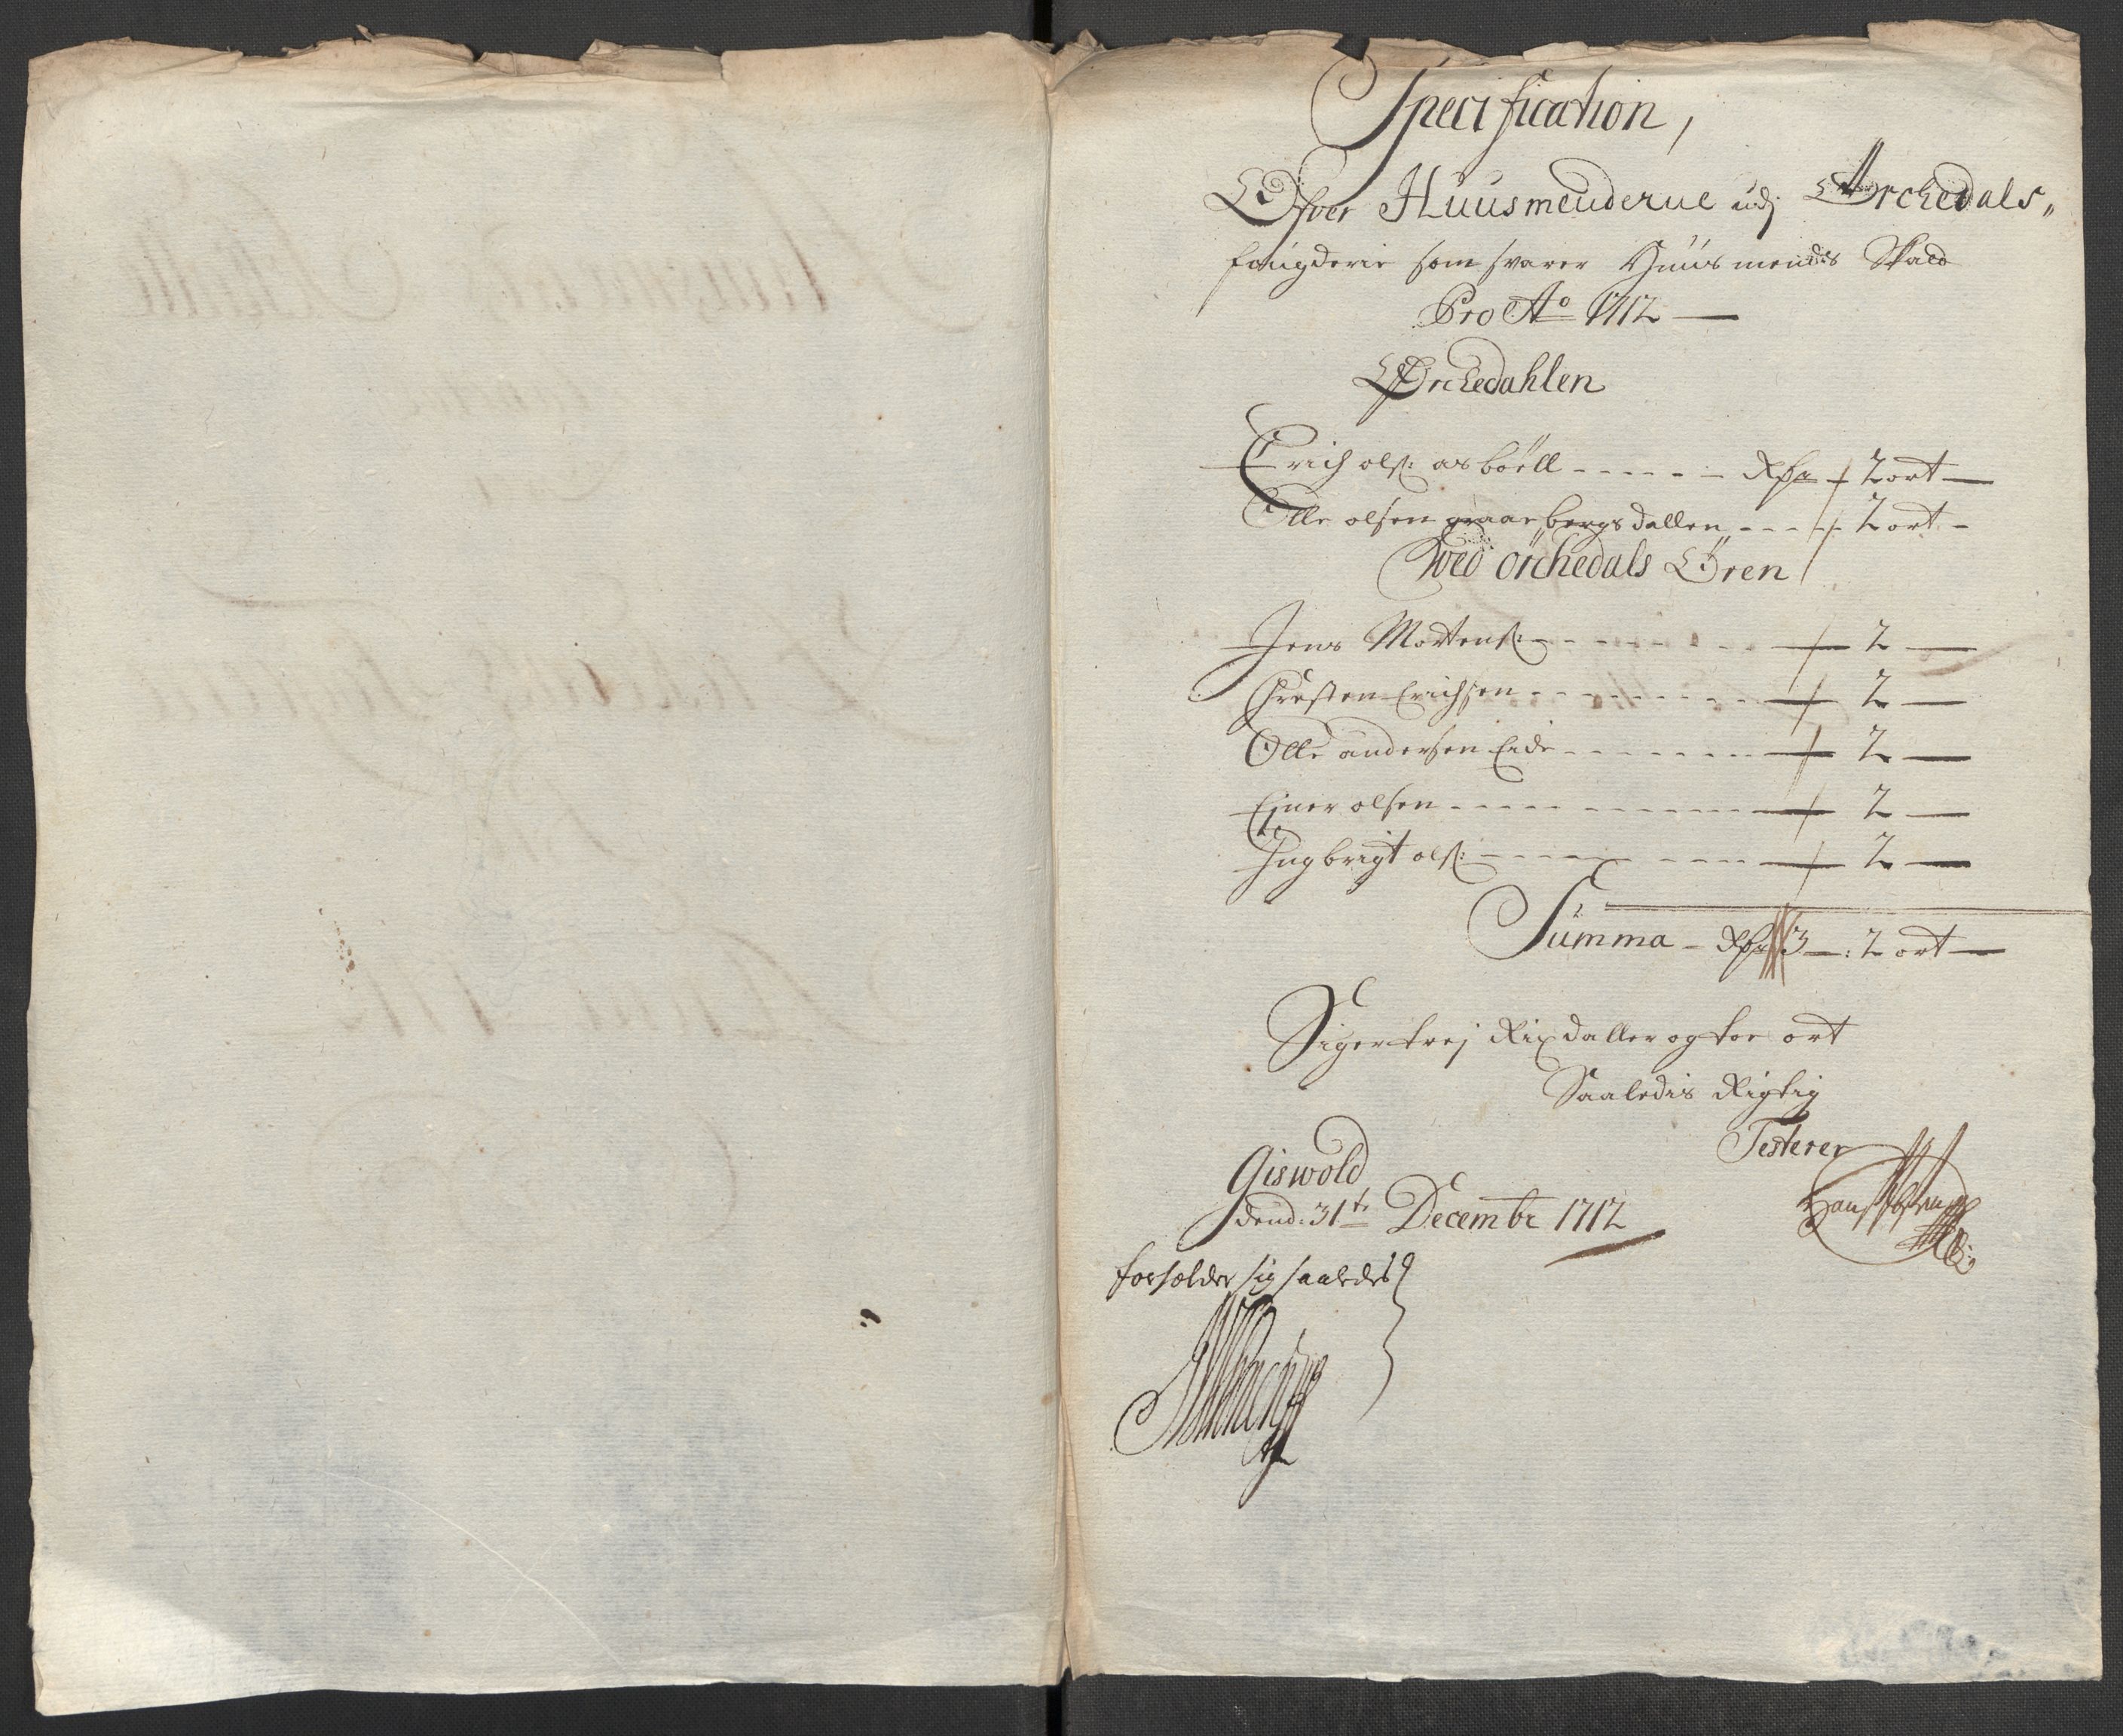 Specification,
Ofver Huusmenderne udj Ørchedals„
fougderie som svarer Huusmends Skatt
Pro Ao 1712 —
Ørchedahlen
Erich olß: asbøell - - - - - - Rdr - 2 ort —
Olle olsen graaebergsdallen - - - - 2 ort -
Wed örchedals Øren
Jens Mortenß: - - - - - - - 2 —
Christen Erichsen - - - - - - - 2 —
Olle andersen Eide - - - - - - - 2 —
Ejner olsen - - - - - - - 2 —
Ingbrigt olß: - - - - - - - 2 —
Summa - Rdr 3 —: 2 ort —
Siger trej Rixdaller og toe ort
Saaledis Rigtig
Testerer
Giswold
dend: 31te Decembr 1712
forholder sig saaledes